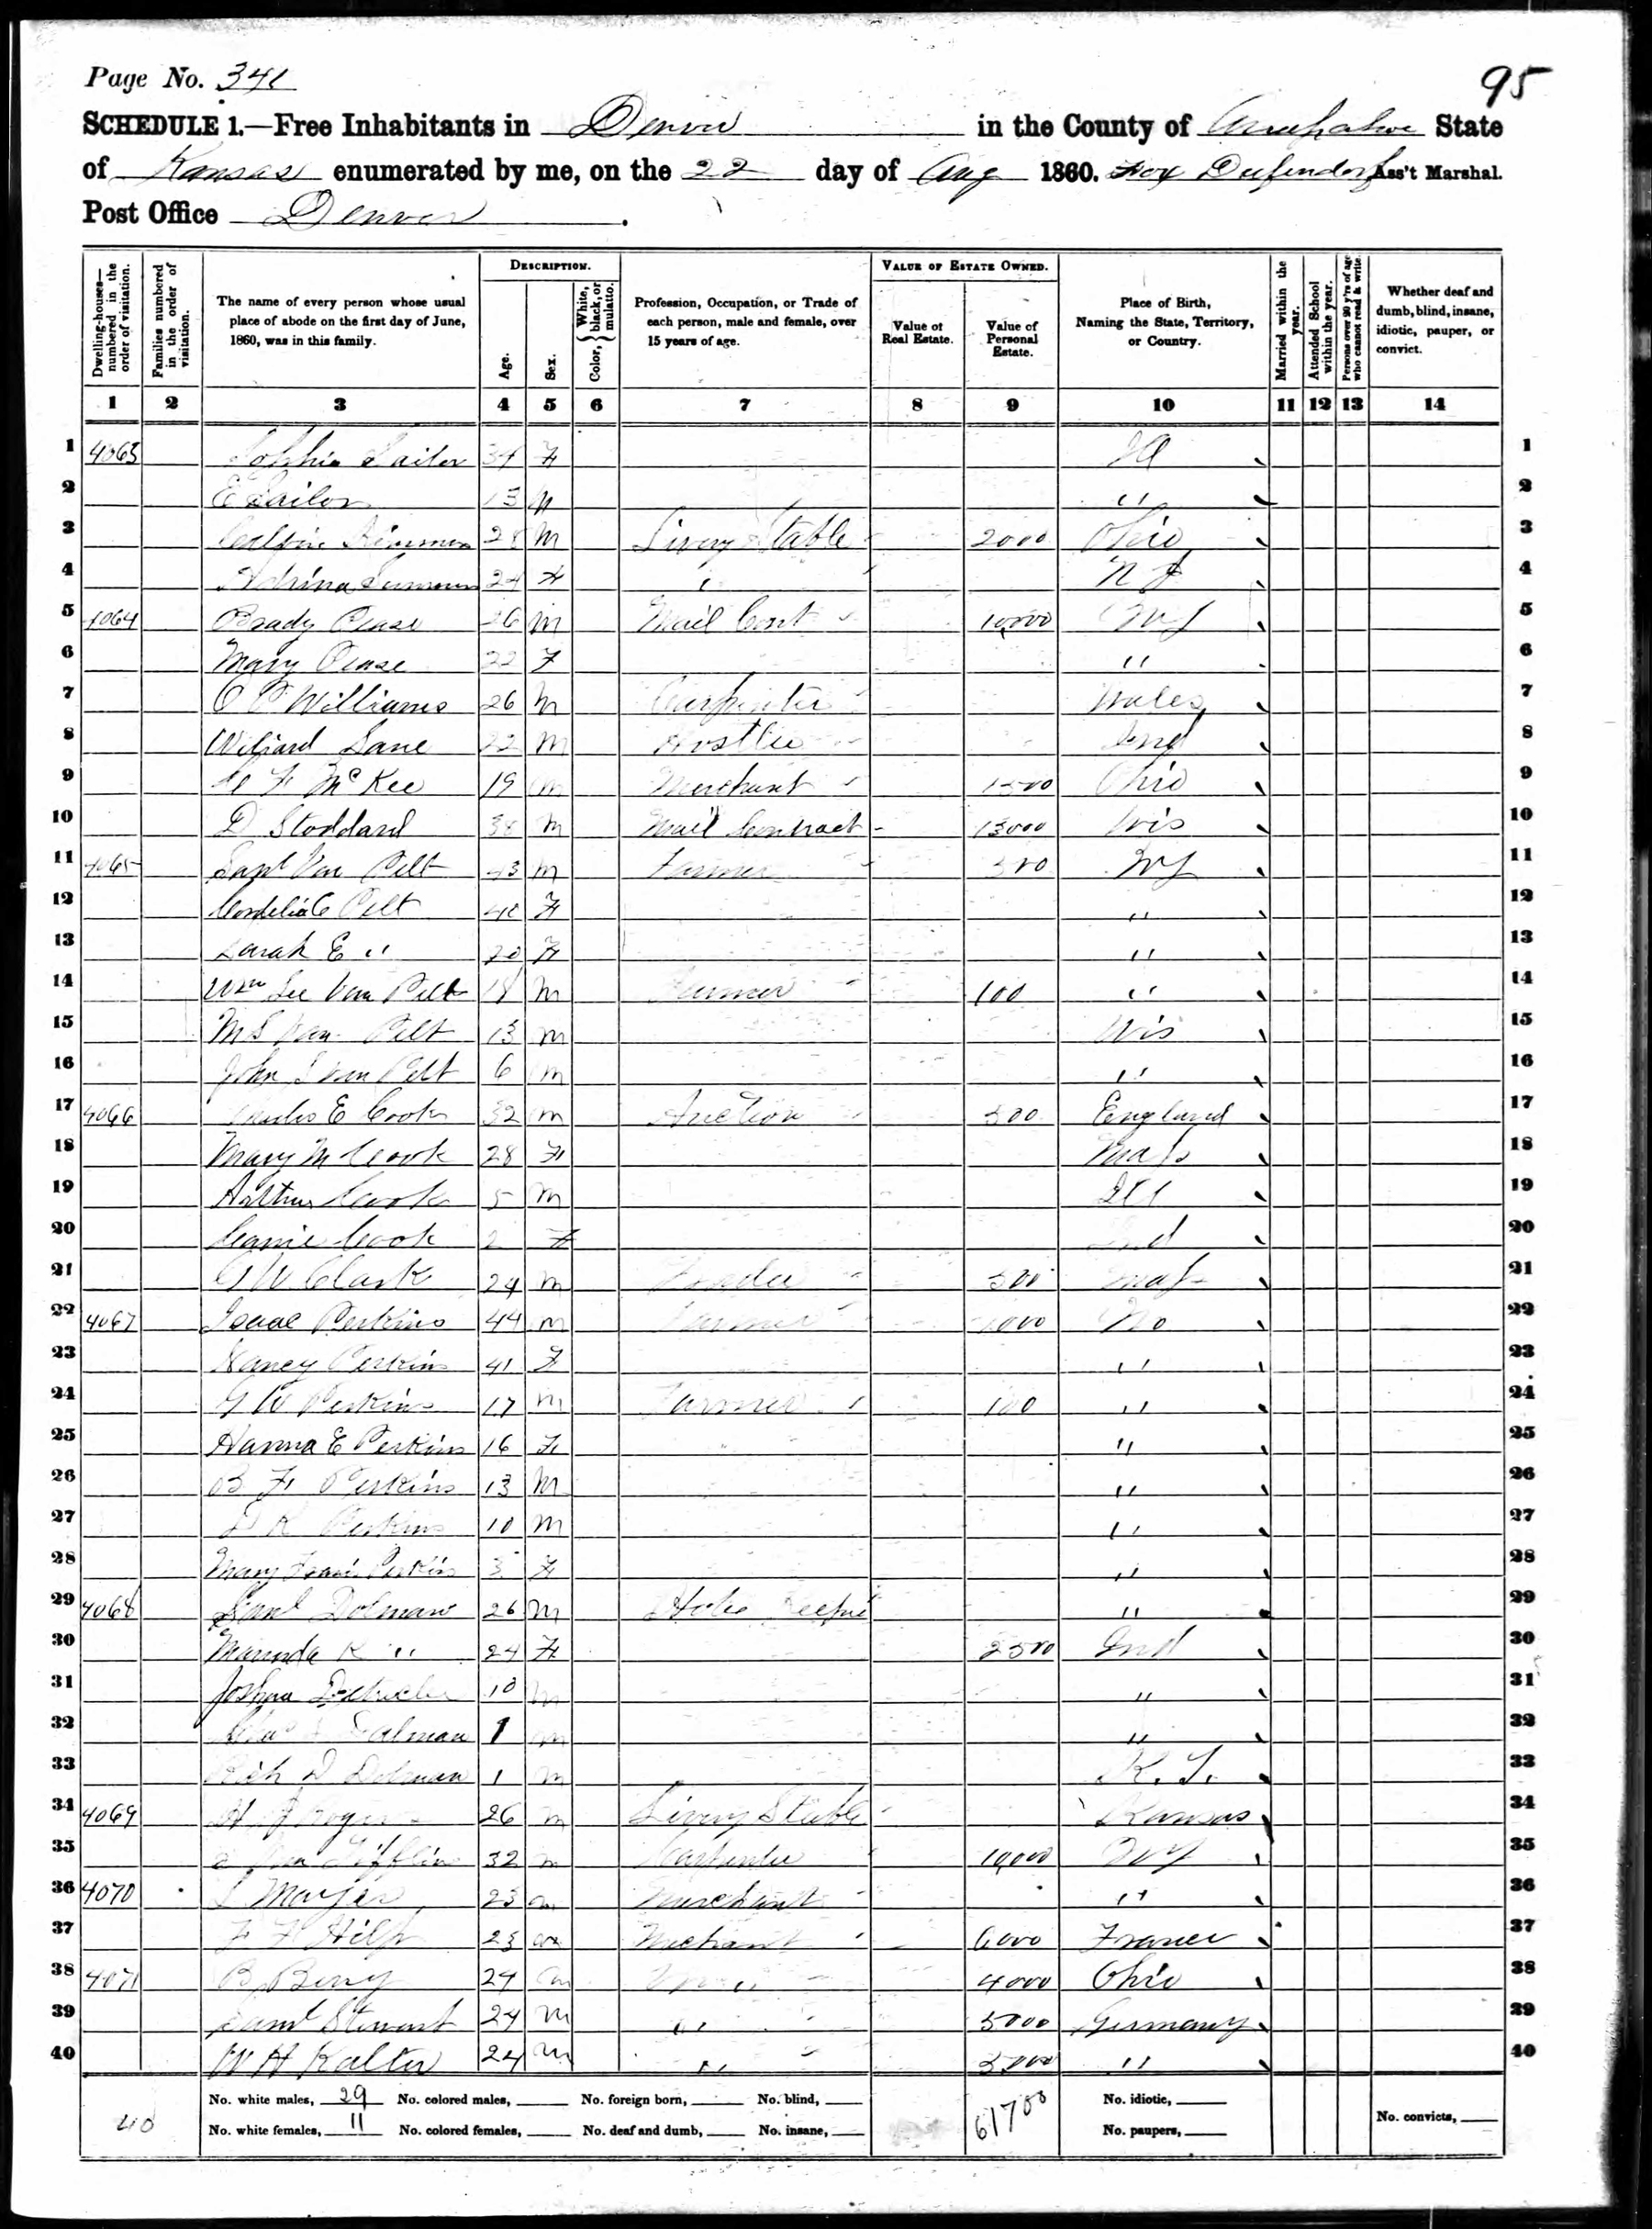 Page No. 341
95
SCHEDULE 1.—Free Inhabitants in Denver in the County of Arrapahoe State
of Kansas enumerated by me, on the 22 day of Aug 1860. Fox Diefendorf Ass't Marshal.
Post Office Denver.
Dwelling-houses—numbered in the order of visitation.
Families numbered in the order of visitation.
The name of every person whose usual place of abode on the first day of June, 1860, was in this family.
DESCRIPTION.
Age.
Sex.
Color, White, black, or mulatto.
Profession, Occupation, or Trade of each person, male and female, over 15 years of age.
VALUE OF ESTATE OWNED.
Value of Real Estate.
Value of Personal Estate.
Place of Birth, Naming the State, Territory, or Country.
Married within the year.
Attended School within the year.
Persons over 20 y'rs of age who cannot read & write.
Whether deaf and dumb, blind, insane, idiotic, pauper, or convict.
1 2 3 4 5 6 7 8 9 10 11 12 13 14
1 4063 Sophia Sailor 34 F 1
2 E Sailor 13 2
3 28 m Livery Stable 2000 Ohio 3
4 24 F " N J 4
5 4064 Brady Pease 26 m Mail Cont 10,000 N Y 5
6 Mary Pease 22 F " 6
7 O P Williams 26 m Carpenter Wales 7
8 Wiliard Lane 22 m Hostler Eng 8
9 F McKee 19 m Merchant 1500 Ohio 9
10 D Stoddard 38 m Mail Contract 13000 Wis 10
11 4065 Saml Van Pelt 43 m Farmer 300 N Y 11
12 Cordelia C Pelt 40 F " 12
13 Sarah E " 20 F " 13
14 Wm Lee Van Pelt 18 m Farmer 100 " 14
15 M S Van Pelt 13 m Wis 15
16 John S Van Pelt 6 m " 16
17 4066 Charles E Cook 32 m Auction 500 England 17
18 Mary M Cook 28 F Mass 18
19 Arthur Cook 5 m Ill 19
20 Cook 2 F Ind 20
21 G W Clark 24 m 500 Mass 21
22 4067 Isaac Perkins 44 m Farmer 1000 Mo 22
23 Nancy Perkins 41 F " 23
24 G W Perkins 17 m Farmer 100 " 24
25 Hanna E Perkins 16 F " 25
26 B F Perkins 13 m " 26
27 D K Perkins 10 m " 27
28 Mary Perkins 3 F " 28
29 4068 Saml Dolman 26 m Hotel Keeper " 29
30 Marinda K " 24 F 2500 Ind 30
31 Joshua 10 m " 31
32 Dolman 1 m " 32
33 Rich D Dolman 1 m K. T. 33
34 4069 Rogers 26 m Livery Stable Kansas 34
35 32 m Carpenter 10,000 N Y 35
36 4070 L Mayer 23 m Merchant " 36
37 F F Hilp 23 m Mechant 6000 France 37
38 4071 B Berry 24 m 4000 Ohio 38
39 Saml Stewart 24 m " 5000 Germany 39
40 W H Kalter 24 m " 5000 " 40
40
No. white males, 29 No. colored males, No. foreign born, No. blind,
No. white females, 11 No. colored females, No. deaf and dumb, No. insane,
61700
No. idiotic,
No. paupers,
No. convicts,